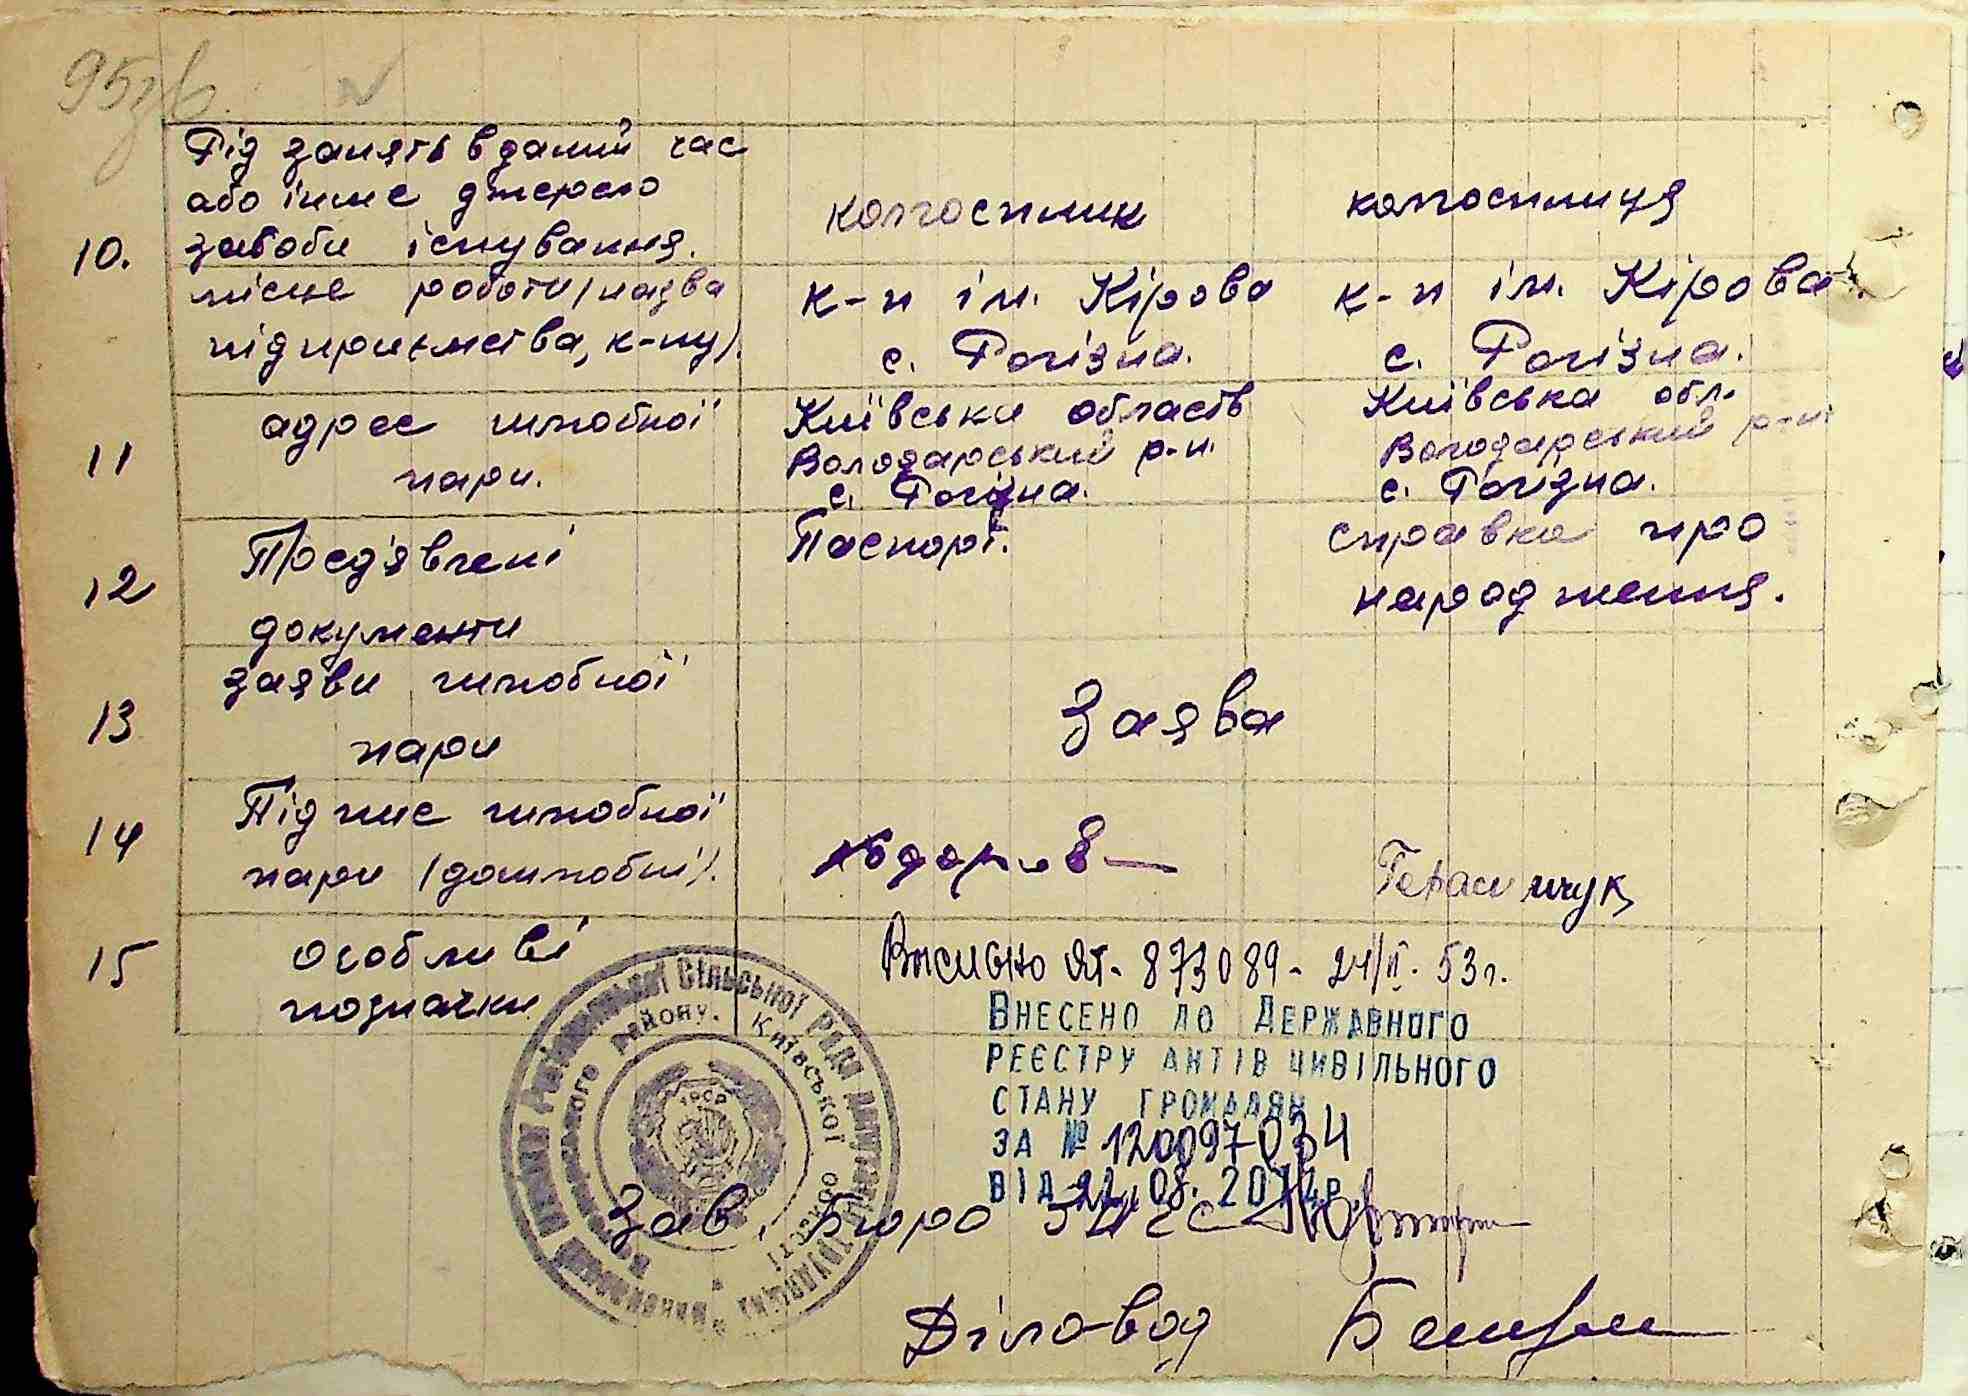 95зв.
10.
Рід занять в даний час
або інше джерело
засоби існування.
місце роботи (назва
підприємства, к-пу).
колгоспник
колгоспниця
к-п ім. Кірова
с. Рогізна.
к-п ім. Кірова
с. Рогізна.
11
адрес шлюбної
пари.
Київська область
Володарський р-н.
с. Рогізна.
Київська обл.
Володарський р-н
с. Рогізна.
12
Пред'явлені
документи
Паспорт.
справка про
народження.
13
заяви шлюбної
пари
Заява
14
Підпис шлюбної
пари (дошлюбні).
Герасимчук
15
особливі
позначки
Виписано ЯТ- 873089 - 24/II. 53 г.
Внесено до Державного
реєстру актів цивільного
стану громадян
за № 120097034
від 22. 08. 2014р
Рогізнянської Сільської Ради депутатів трудящих
Володарського району. Київської області
УРСР
Зав. Бюро ЗАГС
Діловод